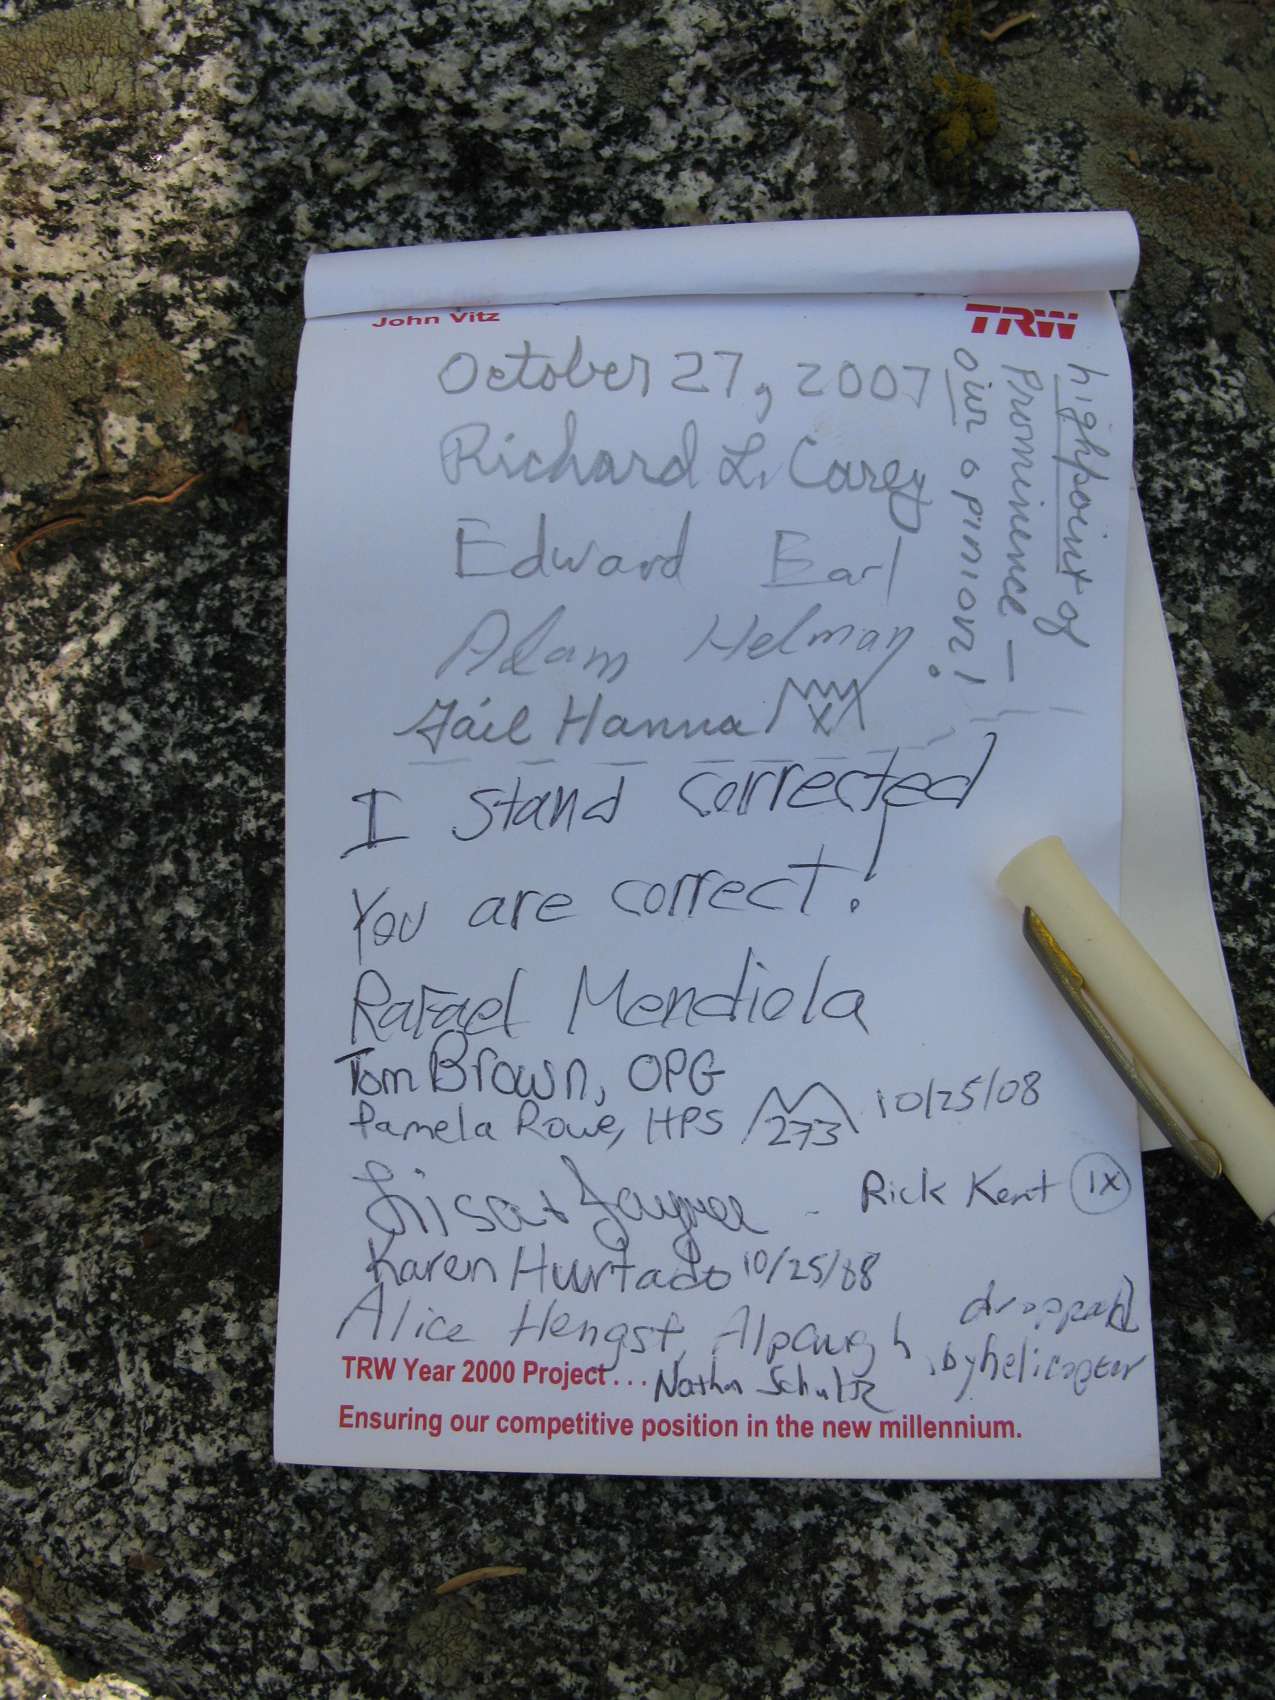 John Vitz
TRW
October 27, 2007
Richard L. Carey
Edward Earl
Adam Helman
Gail Hanna
highpoint of
Prominence –
our opinion!
I stand corrected
You are correct!
Rafael Mendiola
Tom Brown, OPG
Pamela Rowe, HPS 273 10/25/08
Rick Kent IX
Karen Hurtado 10/25/08
Alice Hengst, Alpaugh
dropped
by helicopter
TRW Year 2000 Project...
Nathan Schultz
Ensuring our competitive position in the new millennium.